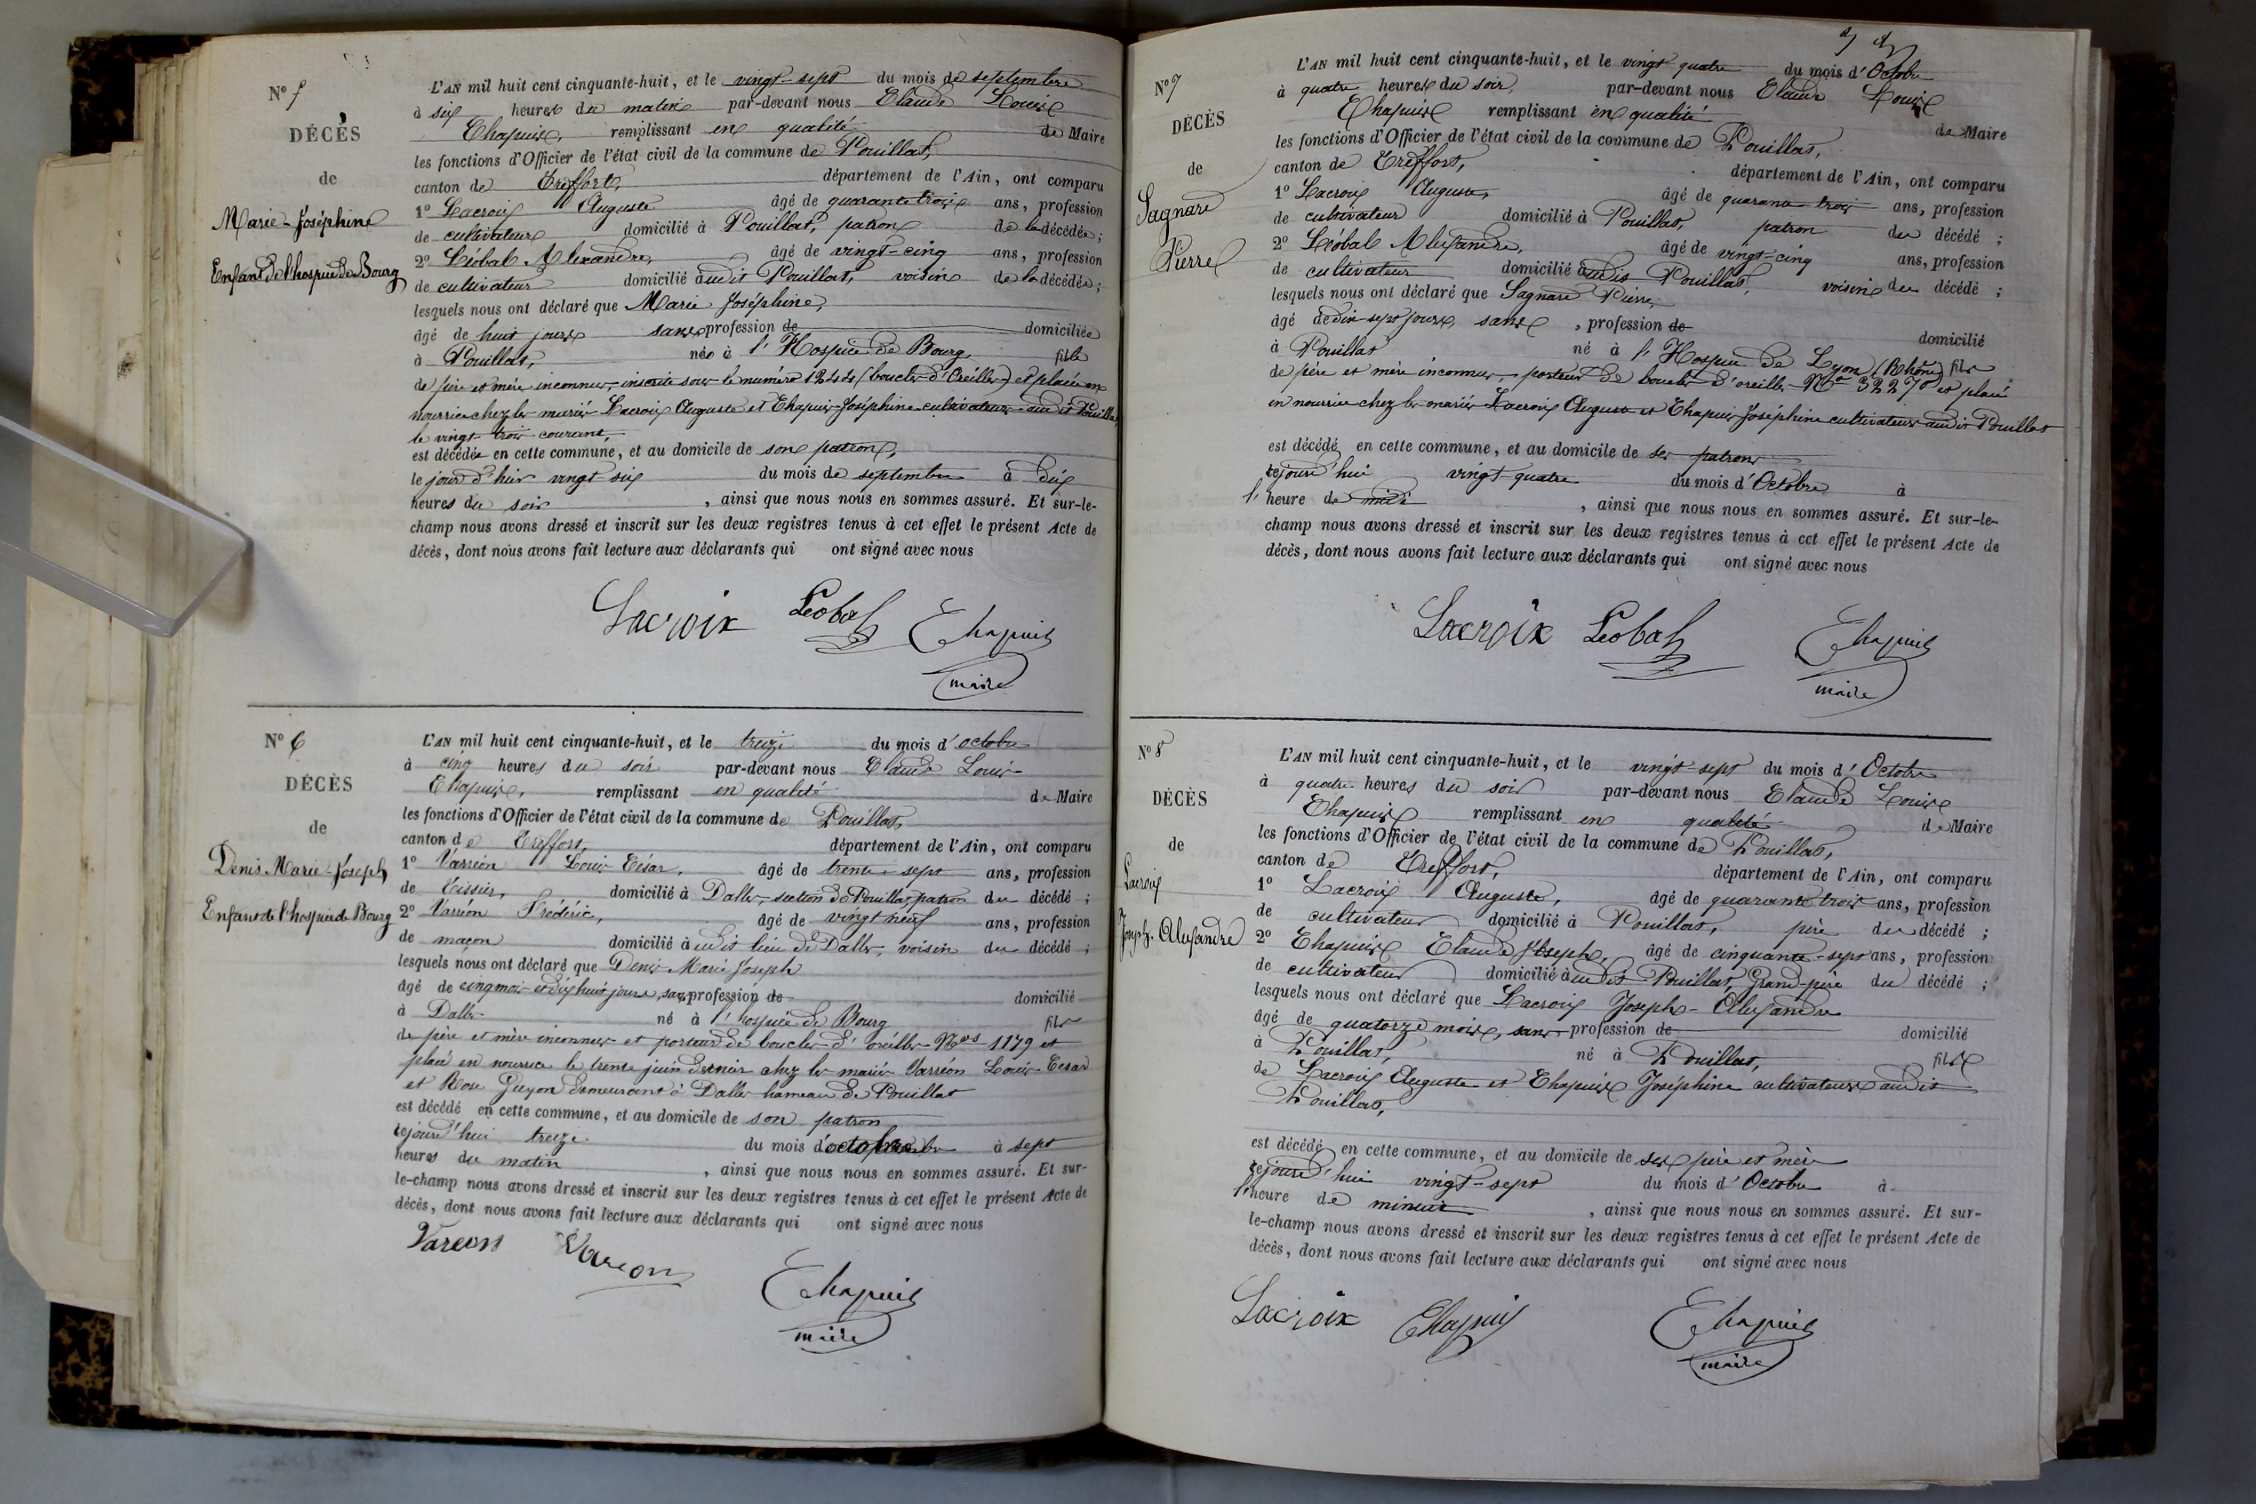 DÉCÈS
de
Marie-Joséphine
Enfant de l'hospice de Bourg
L'AN mil huit cent cinquante-huit, et le vingt-sept du mois de septembre
à six heures du matin par-devant nous Claude Louis
Chapuis, remplissant en qualité de Maire
les fonctions d'Officier de l'état civil de la commune de Pouillat,
canton de Treffort, département de l'Ain, ont comparu
1º Lacroix Auguste âgé de quarante trois ans, profession
de cultivateur domicilié à Pouillat, patron de la décédée;
2º Léobal Alexandre, âgé de vingt-cinq ans, profession
de cultivateur domicilié audit Pouillat, voisin de la décédée;
lesquels nous ont déclaré que Marie Joséphine,
âgé de huit jours sans profession de domiciliée
à Pouillat, née à l'Hospice de Bourg fille
de père et mère inconnus, inscrite sous le numéro (boucles d'Oreilles) et placée en
nourrice chez les mariés Lacroix Auguste et Chapuis Joséphine cultivateurs audit Pouillat,
le vingt-trois courant,
est décédée en cette commune, et au domicile de son patron,
le jour d'hier vingt six du mois de septembre à dix
heures du soir, ainsi que nous nous en sommes assuré. Et sur-le-
champ nous avons dressé et inscrit sur les deux registres tenus à cet effet le présent Acte de
décès, dont nous avons fait lecture aux déclarants qui ont signé avec nous
Lacroix Léobal Chapuis
maire
Nº 6
DÉCÈS
de
Denis Marie-Joseph
Enfant de l'hospice de Bourg
L'AN mil huit cent cinquante-huit, et le treize du mois d'octobre
à cinq heures du soir par-devant nous Claude Louis
Chapuis, remplissant en qualité de Maire
les fonctions d'Officier de l'état civil de la commune de Pouillat,
canton de Treffort, département de l'Ain, ont comparu
1º Varréon Louis César, âgé de trente-sept ans, profession
de tissier, domicilié à Dalles, section de Pouillat, patron du décédé;
2º Varréon Frédéric, âgé de vingt neuf ans, profession
de maçon domicilié audit lieu de Dalles, voisin du décédé;
lesquels nous ont déclaré que Denis Marie Joseph
âgé de cinq mois et dix huit jours, sans profession de domicilié
à Dalles né à l'hospice de Bourg fils
de père et mère inconnus et porteur de boucles d'oreilles Nos 1179 et
placé en nourrice le trente juin dernier chez les mariés Varréon Louis César
et Rose Guyon demeurant à Dalles hameau de Pouillat
est décédé en cette commune, et au domicile de son patron
cejourd'hui treize du mois d'octobre à sept
heures du matin, ainsi que nous nous en sommes assuré. Et sur-
le-champ nous avons dressé et inscrit sur les deux registres tenus à cet effet le présent Acte de
décès, dont nous avons fait lecture aux déclarants qui ont signé avec nous
Vareon Vareon
Chapuis
maire
Nº 7
DÉCÈS
de
Sagnard
Pierre
L'AN mil huit cent cinquante-huit, et le vingt quatre du mois d'Octobre
à quatre heures du soir, par-devant nous Claude Louis
Chapuis remplissant en qualité de Maire
les fonctions d'Officier de l'état civil de la commune de Pouillat,
canton de Treffort, département de l'Ain, ont comparu
1º Lacroix Auguste, âgé de quarante trois ans, profession
de cultivateur domicilié à Pouillat, patron du décédé;
2º Léobal Alexandre, âgé de vingt-cinq ans, profession
de cultivateur domicilié audit Pouillat, voisin du décédé;
lesquels nous ont déclaré que Sagnard Pierre,
âgé de dix sept jours, sans, profession de domicilié
à Pouillat né à l'Hospice de Lyon (Rhône) fils
de père et mère inconnus, porteur de boucles d'oreilles Nº 32270 et placé
en nourrice chez les mariés Lacroix Auguste et Chapuis Joséphine cultivateurs audit Pouillat
est décédé en cette commune, et au domicile de ses patrons
cejourd'hui vingt-quatre du mois d'Octobre à
l'heure de midi, ainsi que nous nous en sommes assuré. Et sur-le-
champ nous avons dressé et inscrit sur les deux registres tenus à cet effet le présent Acte de
décès, dont nous avons fait lecture aux déclarants qui ont signé avec nous
Lacroix Léobal Chapuis
maire
Nº 8
DÉCÈS
de
Lacroix
Joseph-Alexandre
L'AN mil huit cent cinquante-huit, et le vingt-sept du mois d'Octobre
à quatre heures du soir par-devant nous Claude Louis
Chapuis remplissant en qualité de Maire
les fonctions d'Officier de l'état civil de la commune de Pouillat,
canton de Treffort, département de l'Ain, ont comparu
1º Lacroix Auguste, âgé de quarante trois ans, profession
de cultivateur domicilié à Pouillat, père du décédé;
2º Chapuis Claude Joseph, âgé de cinquante-sept ans, profession
de cultivateur domicilié audit Pouillat, Grand-père du décédé;
lesquels nous ont déclaré que Lacroix Joseph-Alexandre
âgé de quatorze mois, sans profession de domicilié
à Pouillat, né à Pouillat, fils
de Lacroix Auguste et Chapuis Joséphine cultivateurs audit
Pouillat,
est décédé en cette commune, et au domicile de ses père et mère
cejourd'hui vingt-sept du mois d'Octobre à
l'heure de minuit, ainsi que nous nous en sommes assuré. Et sur-
le-champ nous avons dressé et inscrit sur les deux registres tenus à cet effet le présent Acte de
décès, dont nous avons fait lecture aux déclarants qui ont signé avec nous
Lacroix Chapuis Chapuis
maire